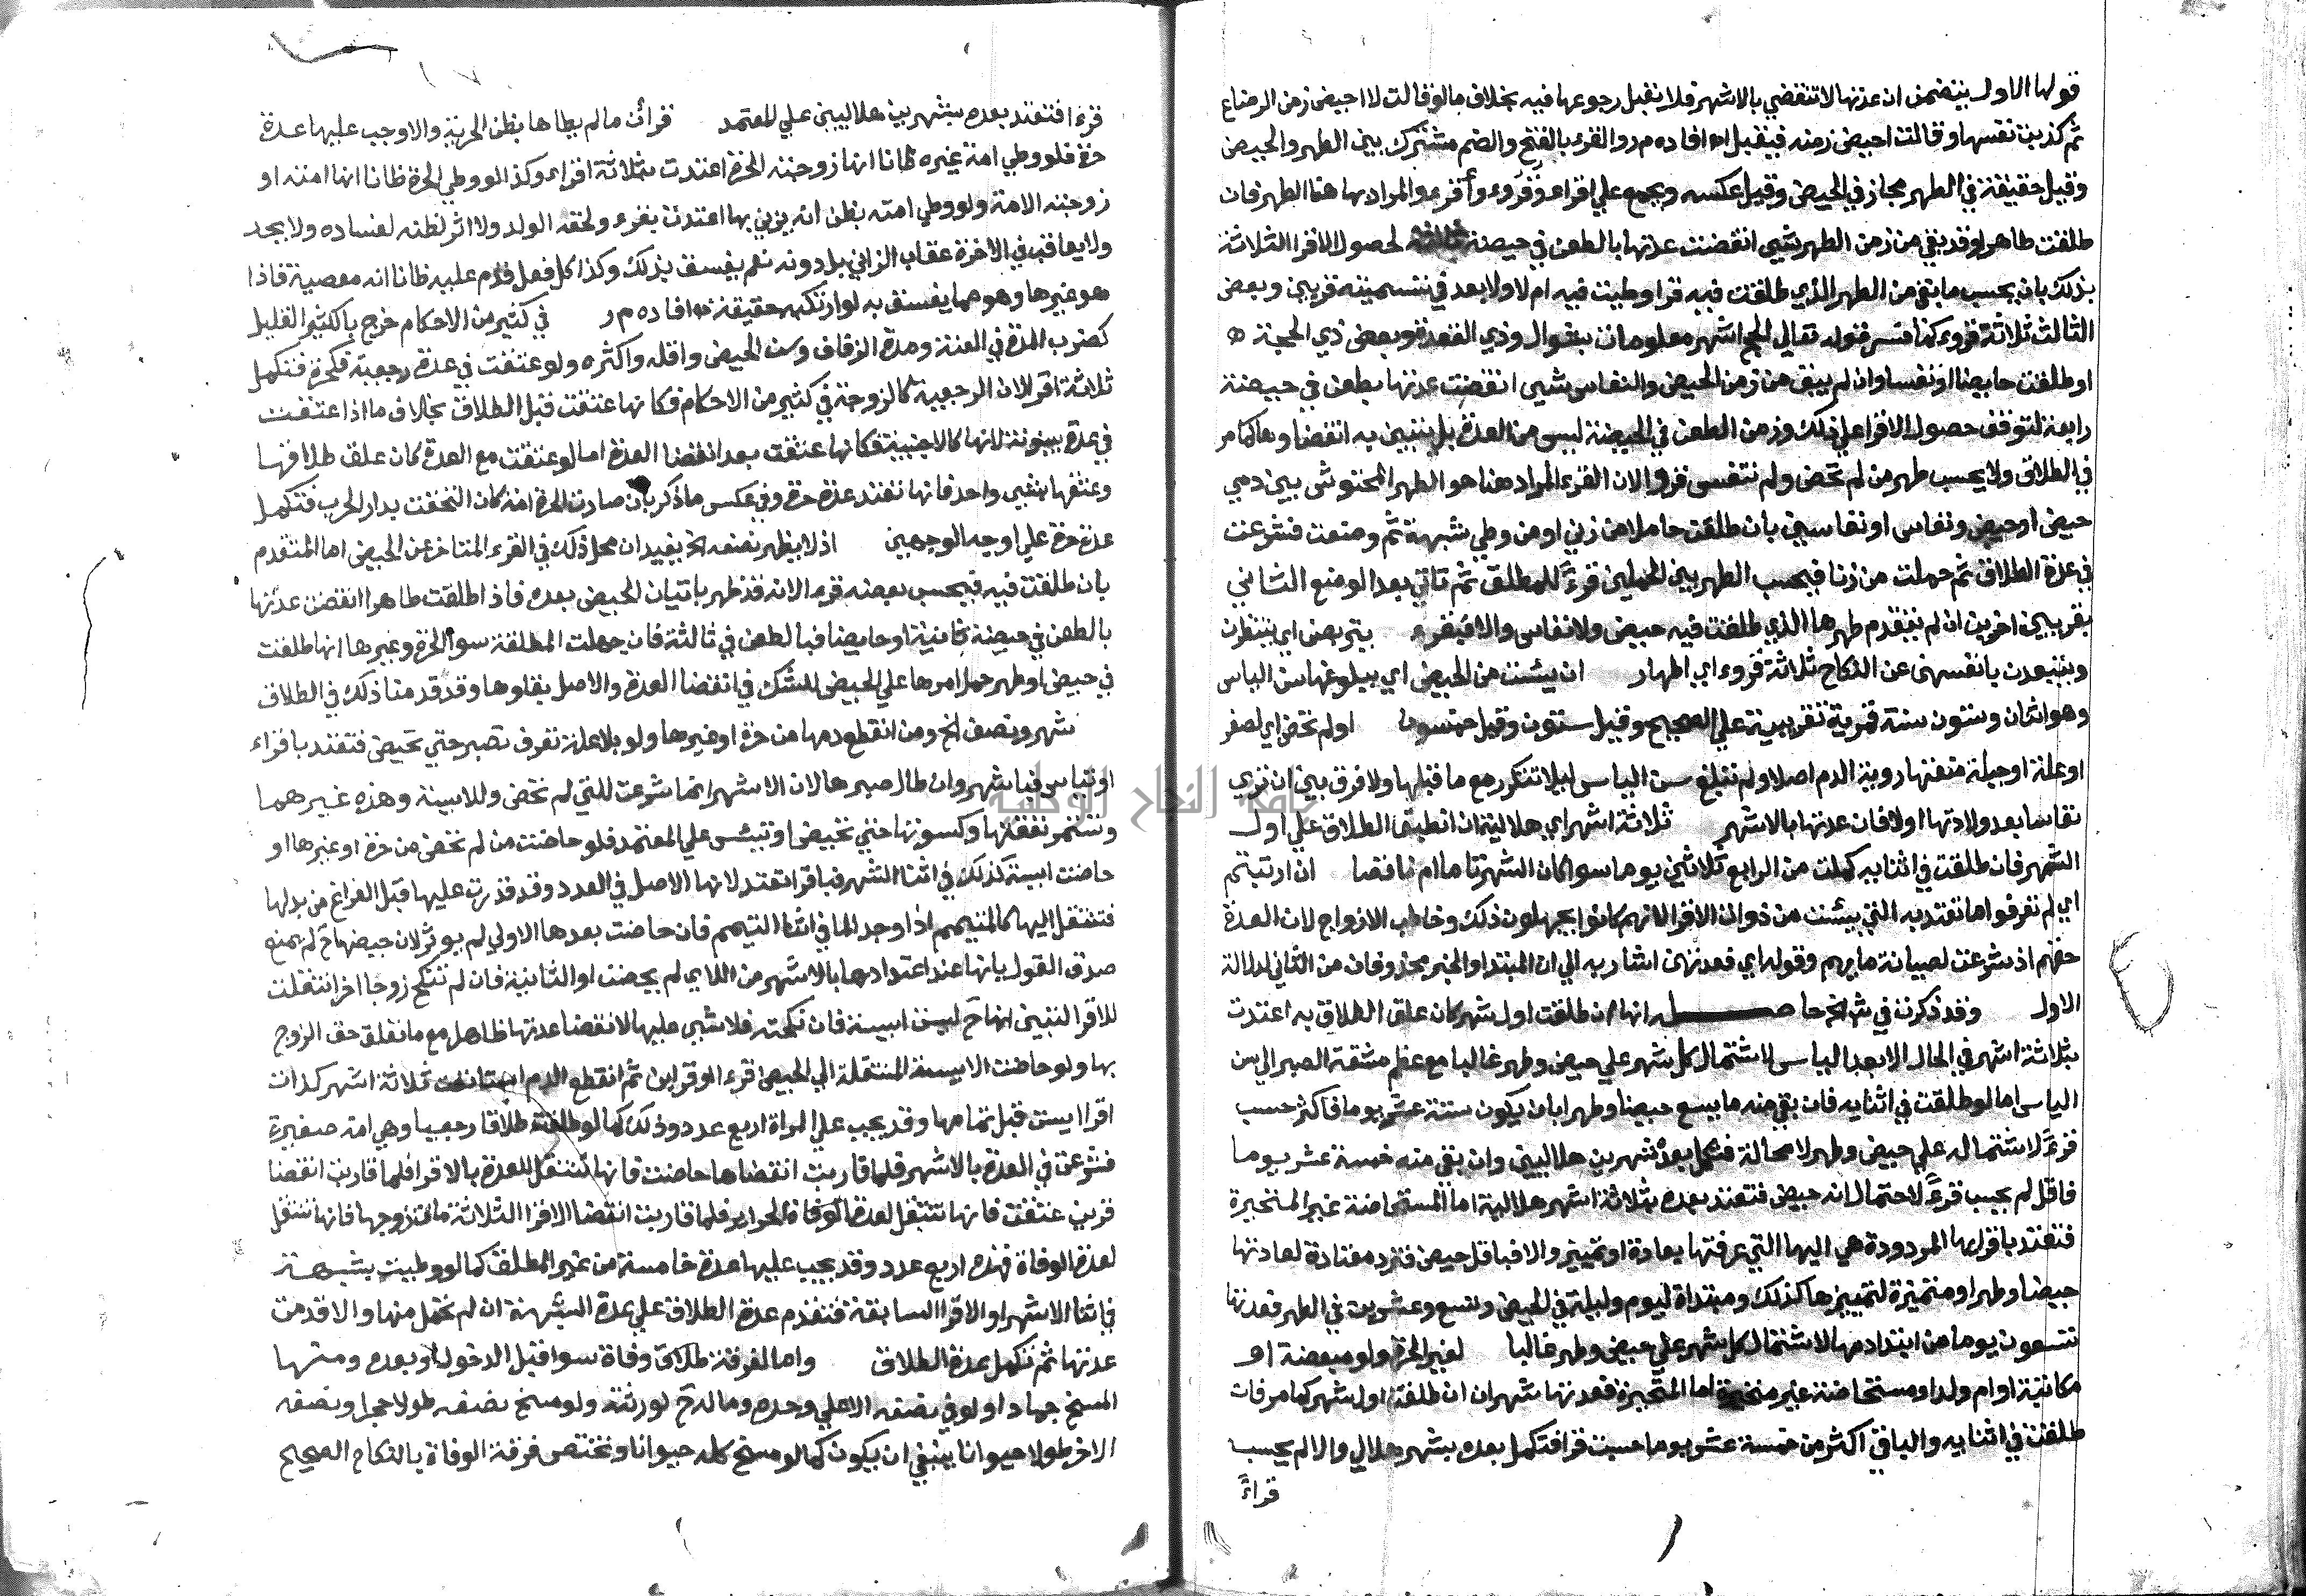 قولها الاول يتضمن ان عدتها لا تنقضي بالاشهر فلا نقبل رجوعها فيه بخلاف ما لو قالت لا احيض زمن الرضاع
ثم كذبت نفسها وقالت احيض زمنه فيقبل اه افاده م ر والقرء بالفتح والضم مشترك بين الطهر والحيض
وقيل حقيقة في الطهر مجاز في الحيض وقيل عكسه ويجمع علي اقراء وقروء وأقرء والمراد بها هنا الطهر فان
طلقت طاهرا وقد بقي من زمن الطهر شيي انقضت عدتها بالطعن في حيضة ثالثة لحصول الاقرا الثلاثة
بذلك بان يحسب ما بقي من الطهر الذي طلقت فيه قرا وطيت فيه ام لا ولا بعد في تسمية قريين وبعض
الثالث ثلاثة قروء كما فسر قوله تعالي الحج اشهر معلومات بشوال وذي القعدة وبعض ذي الحجة
او طلقت حايضا او نفسا وان لم يبق من زمن الحيض والنفاس شيي انقضت عدتها بطعن في حيضة
رابعة لتوقف حصول الاقرا علي ذلك وزمن الطعن في الحيضة ليس من العدة بل يتبين به انقضاوها كما مر
في الطلاق ولا يحسب طهر من لم تحض ولم تنفس قروا لان القرء المراد هنا هو الطهر المحتوش بين دمي
حيض او حيض ونفاس او نفاسين بان طلقت حاملا من زني او من وطي شبهة ثم وضعت فشرعت
في عدة الطلاق ثم حملت من زنا فيحسب الطهر بين الحملين قرءً للمطلق ثم تاتي بعد الوضع الثاني
بقريين اخرين ان لم يتقدم طهرها الذي طلقت فيه حيض ولا نفاس والا فبقرء يتربصن اي ينتظرن
ويتبعدن بانفسهن عن النكاح ثلاثة قروء اي اطهار ان يئست من الحيض اي ببلوغها سن الياس
وهو اثنان وستون سنة قمرية تقريبية علي الصحيح وقيل ستون وقيل خمسون او لم تحض اي لصغر
او علة او جبلة منعتها روية الدم اصلا ولم تبلغ سن الياس ليلا تتكرر مع ما قبلها ولا فرق بين ان تري
نفاسا بعد ولادتها اولا فان عدتها بالاشهر ثلاثة اشهر اي هلالية ان انطبق الطلاق علي اول
الشهر فان طلقت في اثنايه كملت من الرابع ثلاثين يوما سوا كان الشهر تاما ام ناقصا ان ارتبتم
اي لم تعرفوا ما تعتد به التي يئست من ذوات الاقرا لانهم كانوا يجهلون ذلك وخاطب الازواج لان العدة
حقهم اذ شرعت لصيانة مايهم وقوله اي فعدتهن اشار به الي ان المبتدا والخبر محذوفان من الثاني لدلالة
الاول وقد ذكرت في ش انها ان طلقت اول شهر كان علق الطلاق به اعتدت
بثلاثة اشهر في الحال لا بعد الياس لاشتمال كل شهر علي حيض وطهر غالبا مع عظم مشقة الصبر الي سن
الياس اما لو طلقت في اثنايه فان بقي منه ما يسع حيضا وطهرا بان يكون ستة عشر يوما فاكثر حسب
قرءً لاشتماله علي حيض وطهر لا محالة فتكمل بعده شهرين هلاليين وان بقي منه خمسة عشر يوما
فاقل لم يحسب قرءً لاحتمال انه حيض فتعتد بعده بثلاثة اشهر هلالية اما المستحاضة غير المتحيرة
فتعتد باقرايها المردودة هي اليها التي عرفتها بعادة او تمييز والا فباقل حيض فترد معتادة لعادتها
حيضا وطهرا ومتميزة لتمييزها كذلك ومبتداة ليوم وليلة في الحيض وتسع وعشرين في الطهر فعدتها
تسعون يوما من ابتداء دمها لاشتمال كل شهر علي حيض وطهر غالبا لغير الحرة ولو مبعضة او
مكاتبة او ام ولد او مستحاضة غير متحيرة اما المتحيرة فعدتها شهران ان طلقت اول شهر كما مر فان
طلقت في اثنايه والباقي اكثر من خمسة عشر يوما حسبت قرا فتكمل بعده بشهر هلالي والا لم يحسب
قراءً
قرءا فتعتد بعده بشهرين هلاليين علي المعتمد قرأن ما لم يطاها بظن الحرية والا وجب عليها عدة
حرة فلو وطي امة غيره ظانا انها زوجته الحرة اعتدت بثلاثة اقراء وكذا لو وطي الحرة ظانا انها امته او
زوجته الامة ولو وطي امته بظن انه يزني بها اعتدت بقرء ولحقه الولد ولا اثر لظنه لفساده ولا يحد
ولا يعاقب في الاخرة عقاب الزاني بل دونه نعم يفسق بذلك وكذا كل فعل قدم عليه ظانا انه معصية فاذا
هو غيرها وهو مما يفسق به لو ارتكبه حقيقة اه افاده م ر في كثير من الاحكام خرج بالكثير القليل
كضرب المدة في العنة ومدة الزفاف وسن الحيض واقله واكثره ولو عتقت في عدة رجعية فكحرة فتكمل
ثلاثة اقرا لان الرجعية كالزوجة في كثير من الاحكام فكانها عتقت قبل الطلاق بخلاف ما اذا عتقت
في عدة بينونة لانها كالاجنبية فكانها عتقت بعد انقضا العدة اما لو عتقت مع العدة كان علق طلاقها
وعتقها بشيي واحد فانها تعتد عدة حرة وفي عكس ما ذكر بان صارت الحرة امة كان التحقت بدار الحرب فتكمل
عدة حرة علي اوجه الوجهين اذ لا يظهر نصفه الخ يفيد ان محل ذلك في القرء المتاخر عن الحيض اما المتقدم
بان طلقت فيه فيحسب بعضه قرءا لانه قد ظهر باتيان الحيض بعده فاذا طلقت طاهرا انقضت عدتها
بالطعن في حيضة ثانية او حايضا فبالطعن في ثالثة فان جهلت المطلقة سوا الحرة وغيرها انها طلقت
في حيض او طهر حمل امرها علي الحيض للشك في انقضا العدة والاصل بقاوها وقد قدمنا ذلك في الطلاق
شهر ونصف الخ ومن انقطع دمها من حرة او غيرها ولو بلا علة تعرف تصبر حتي تحيض فتعتد باقراء
او تياس فباشهر وان طال صبرها لان الاشهر انما شرعت للتي لم تحض وللايسة وهذه غيرهما
وتستمر نفقتها وكسوتها حتي تحيض او تيئس علي المعتمد فلو حاضت من لم تحض من حرة او غيرها او
حاضت ايسة كذلك في اثنا الاشهر فباقرا تعتد لانها الاصل في العدد وقد قدرت عليها قبل الفراغ من بدلها
فتنتقل اليها كالمتيمم اذا وجد الما في اثنا التيمم فان حاضت بعدها الاولي لم يوثر لان حيضها ح لم يمنع
صدق القول بانها عند اعتدادها بالاشهر من اللاي لم يحضن او الثانية فان لم تنكح زوجا اخر انتقلت
للاقرا لتبين انها ح ليست ايسة فان نكحته فلا شيي عليها لانقضا عدتها ظاهرا مع ما تعلق حق الزوج
بها ولو حاضت الايسة المنتقلة الي الحيض قرء او قراين ثم انقطع الدم استانفت ثلاثة اشهر كذات
اقرا ايست قبل تمامها وقد يجب علي المراة اربع عدد وذلك كما لو طلقت طلاقا رجعيا وهي امة صغيرة
فشرعت في العدة بالاشهر فلما قاربت انقضاها حاضت فانها تنتقل للعدة بالاقرا فلما قاربت انقضا
قرين عتقت فانها تنتقل لعدة الحراير فلما قاربت انقضا الاقرا الثلاثة مات زوجها فانها تنتقل
لعدة الوفاة فهذه اربع عدد وقد يجب عليها عدة خامسة من غير المطلق كما لو وطيت بشبهة
في اثنا الاشهر او الاقرا السابقة فتقدم عدة الطلاق علي عدة الشبهة ان لم تحمل منها والا قدمت
عدتها ثم تكمل عدة الطلاق واما لفرقة طلاق وفاة سوا قبل الدخول او بعده ومثلها
المسخ جمادا ولو في نصفه الاعلي وحده وماله ح لورثته ولو مسخ نصفه طولا حجرا ونصفه
الاخر طولا حيوانا ينبغي ان يكون كما لو مسخ كله حيوانا وتختص فرقة الوفاة بالنكاح الصحيح
جامعة النجاح الوطنية